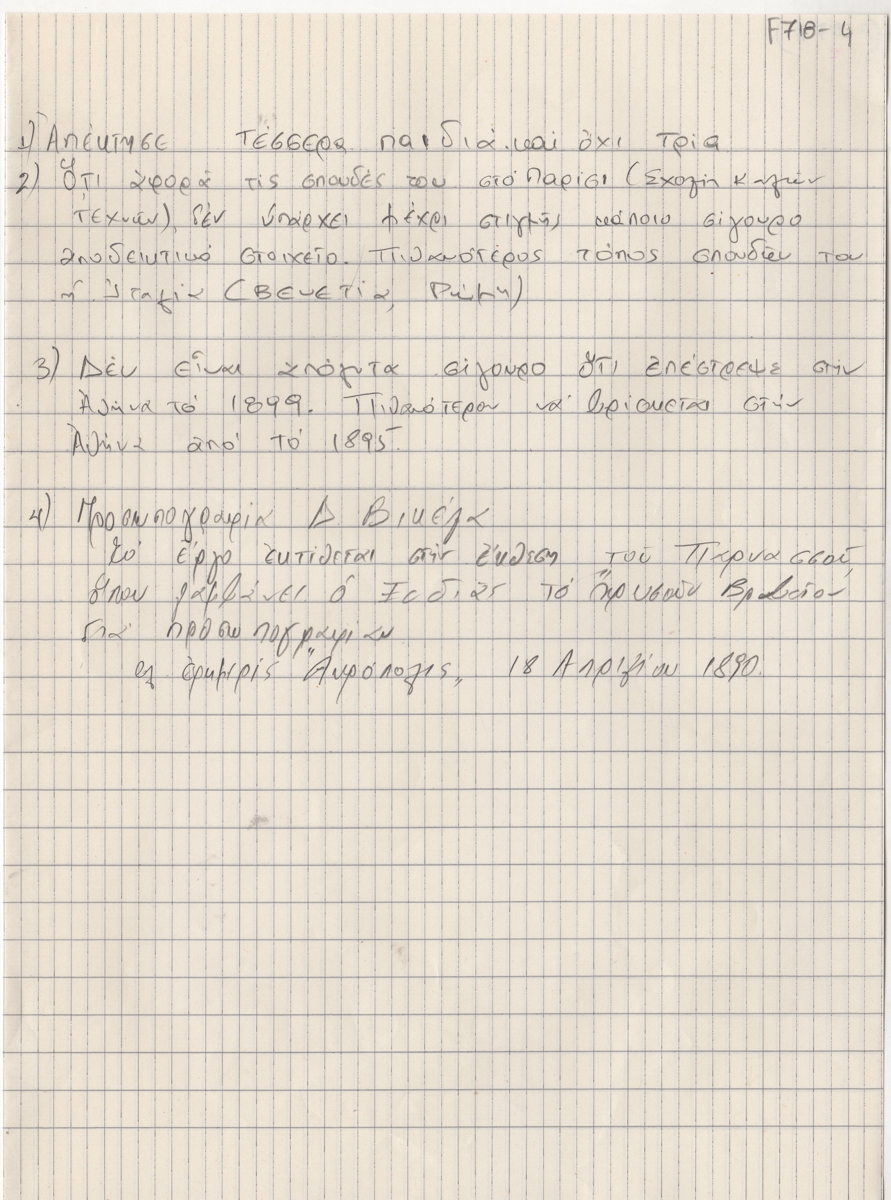 F718-4
1) Απέκτησε τέσσερα παιδιά και όχι τρία
2) Ὅτι ἀφορᾶ τίς σπουδές του στό Παρίσι (Σχολή Καλῶν
Τεχνῶν), δέν ὑπάρχει μέχρι στιγμῆς κάποιο σίγουρο
ἀποδεικτικό στοιχεῖο. Πιθανότερος τόπος σπουδῶν του
ἡ Ἰταλία (Βενετία, Ρώμη)
3) Δέν εἶναι ἀπόλυτα σίγουρο ὅτι ἐπέστρεψε στήν
Ἀθήνα τό 1899. Πιθανότερον νά βρίσκεται στήν
Ἀθήνα ἀπό τό 1895.
4) Προσωπογραφία Δ Βικέλα
Τό ἔργο ἐκτίθεται στήν ἔκθεση τοῦ Παρνασσοῦ,
ὅπου λαμβάνει ὁ τό Χρυσοῦν Βραβεῖον
διά προσωπογραφίαν
ἐφημερίς "Ἀκρόπολις„ 18 Απριλίου 1890.